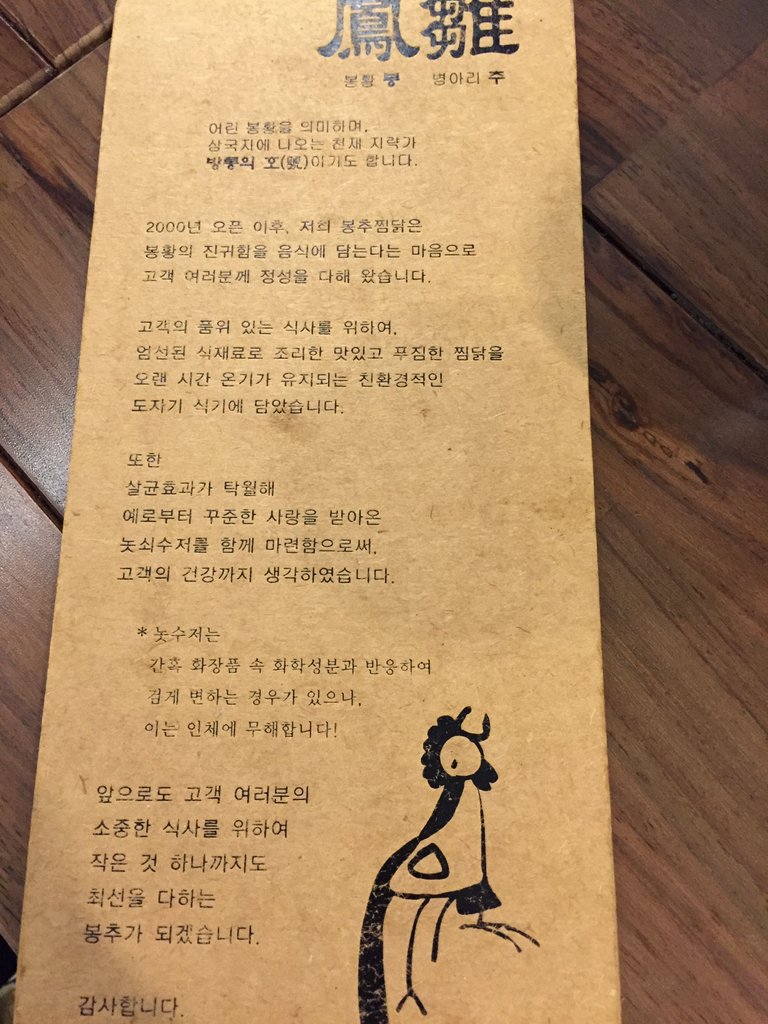 鳳雛
봉황 봉 병아리 추
어린 봉황을 의미하며,
삼국지에 나오는 천재 지략가
방통의 호(號)이기도 합니다.
2000년 오픈 이후, 저희 봉추찜닭은
봉황의 진귀함을 음식에 담는다는 마음으로
고객 여러분께 정성을 다해 왔습니다.
고객의 품위 있는 식사를 위하여,
엄선된 식재료로 조리한 맛있고 푸짐한 찜닭을
오랜 시간 온기가 유지되는 친환경적인
도자기 식기에 담았습니다.
또한
살균효과가 탁월해
예로부터 꾸준한 사랑을 받아온
놋쇠수저를 함께 마련함으로써,
고객의 건강까지 생각하였습니다.
*놋수저는
간혹 화장품 속 화학성분과 반응하여
검게 변하는 경우가 있으나,
이는 인체에 무해합니다!
앞으로도 고객 여러분의
소중한 식사를 위하여
작은 것 하나까지도
최선을 다하는
봉추가 되겠습니다.
감사합니다.